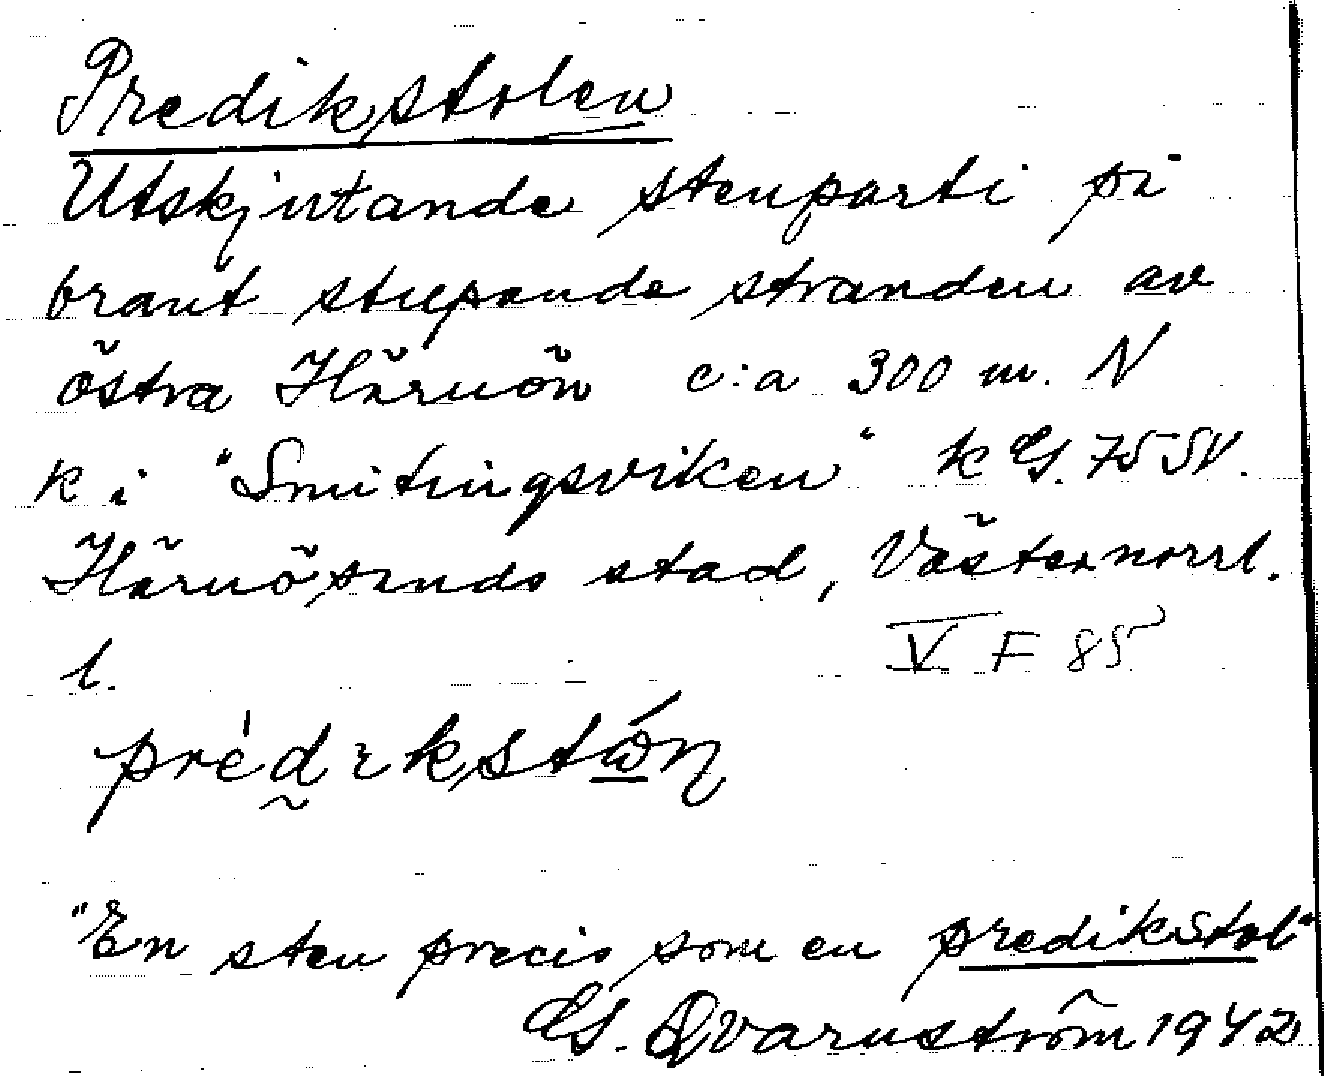 Predikstolen
Utskjutande stenparti på
brant stupande stranden av
östra Härnön c:a 300 m. N
k i "Smitingsviken" k GS. 75 SV.
Härnösands stad, Västernorrl.
l.
V F 85
"En sten precis som en predikstol"
GS. Qvarnström 1942